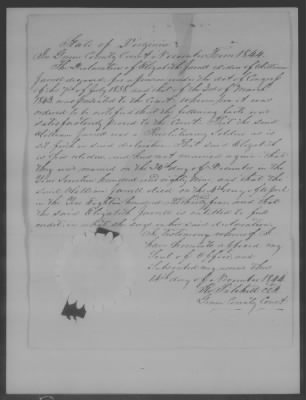 State of Virginia
In Green County Court November Term 1844.
The Declaration of Elizabeth Jarrell widow of William
Jarrell deceased for a pension under the Act of Congress
of the 7th of July 1838 and that of the 3rd of March
1843 was presented to the Court, whereupon it was
ordered to be certified that the following facts were
satisfactorily proved to the Court. That the said
William Jarrell was a Revolutionary Soldier as is
set forth in said declaration. That said Elizabeth
is his widow, and has not married again. That
they were married on the day of December in the
Year Seventeen hundred and eighty nine and that the
said William Jarrell died on the of
in the Year Eighteen hundred and that
the said Elizabeth Jarrell is
In testimony whereof I
have hereunto affixed my
Seal of Office and
Subscribed my name this
14th day of November 1844
Clk
Green County Court